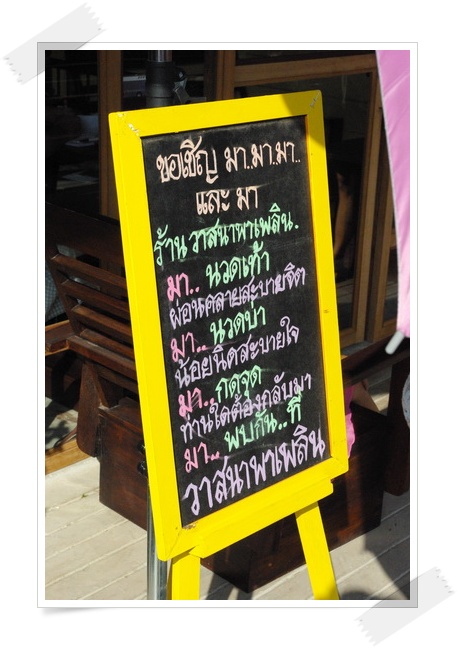 ขอเชิญ มา.มา.มา..
และ มา
ร้าน วาสนาพาเพลิน.
มา.. นวดเท้า
ผ่อนคลายสะบายจิต
มา.. นวดบ่า
น้อยนิดสะบายใจ
มา.. กดจุด
ท่านใดต้องกลับมา
มา.. พบกัน..ที่
วาสนาพาเพลิน